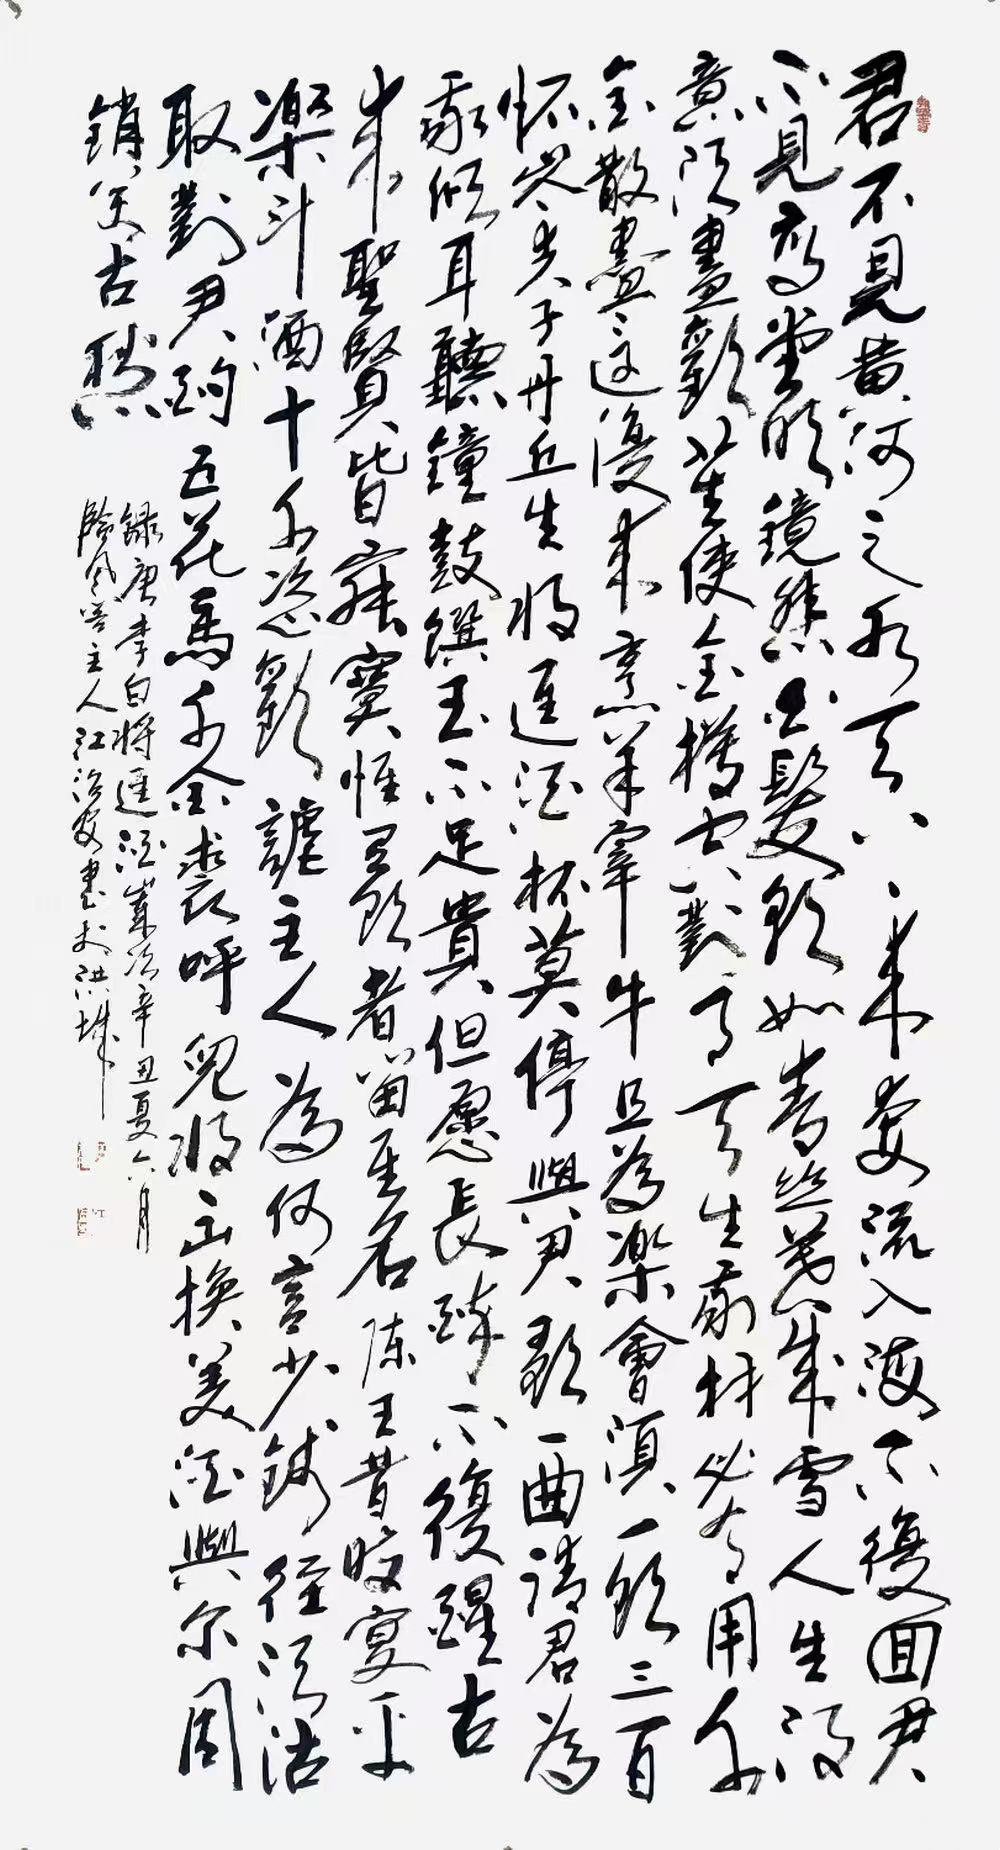 君不見黃河之水天上來奔流入海不復回君
不見高堂明鏡悲白髮朝如青絲暮成雪人生得
意須盡歡莫使金樽空對月天生我材必有用千
金散盡還復來烹羊宰牛且為樂會須一飲三百
杯岑夫子丹丘生將進酒杯莫停與君歌一曲請君為
我傾耳聽鐘鼓饌玉不足貴但愿長醉不復醒古
來聖賢皆寂寞惟有飲者留其名陳王昔時宴平
樂斗酒十千恣歡謔主人為何言少錢徑須沽
取對君酌五花馬千金裘呼兒將出換美酒與爾同
銷萬古愁
錄唐李白將進酒歲次辛丑夏六月
主人江治安書於洪城